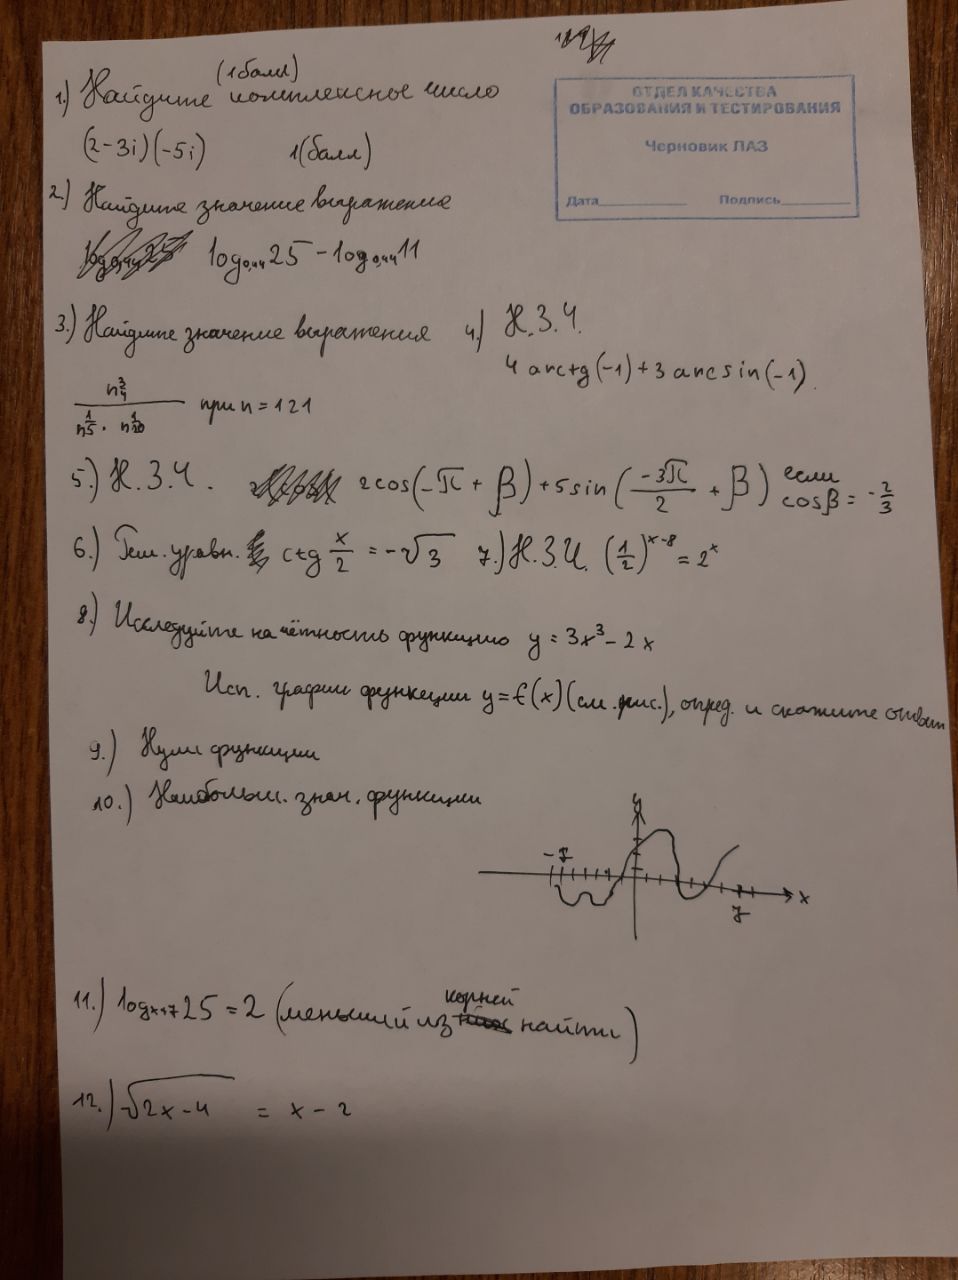 (1 балл)
1.) Найдите комплексное число
(2-3i)(-5i) 1(балл)
ОТДЕЛ КАЧЕСТВА
ОБРАЗОВАНИЯ И ТЕСТИРОВАНИЯ
Черновик ЛАЗ
Дата Подпись
2.) Найдите значение выражение
log₀,₄₄25 - log₀,₄₄11
3.) Найдите значение выражения
n^(3/4) / (n^(1/5) · n^(1/20)) при n = 121
4.) Н.З.Ч.
4 arctg(-1) + 3 arcsin(-1).
5.) Н.З.Ч. 2cos(-π + β) + 5sin(-3π/2 + β) если cosβ = -2/3
6.) Реш. уравн. ctg x/2 = -√3 7.) Н.З.Ч. (1/2)^(x-8) = 2^x
8.) Исследуйте на чётность функцию y = 3x³ - 2x
Исп. график функции y = f(x) (см. рис.), опред. и скажите ответ
9.) Нули функции
10.) Наибольш. знач. функции
y
-7
x
7
11.) logₓ₊₇25 = 2 (меньший из корней найти)
12.) √(2x-4) = x - 2